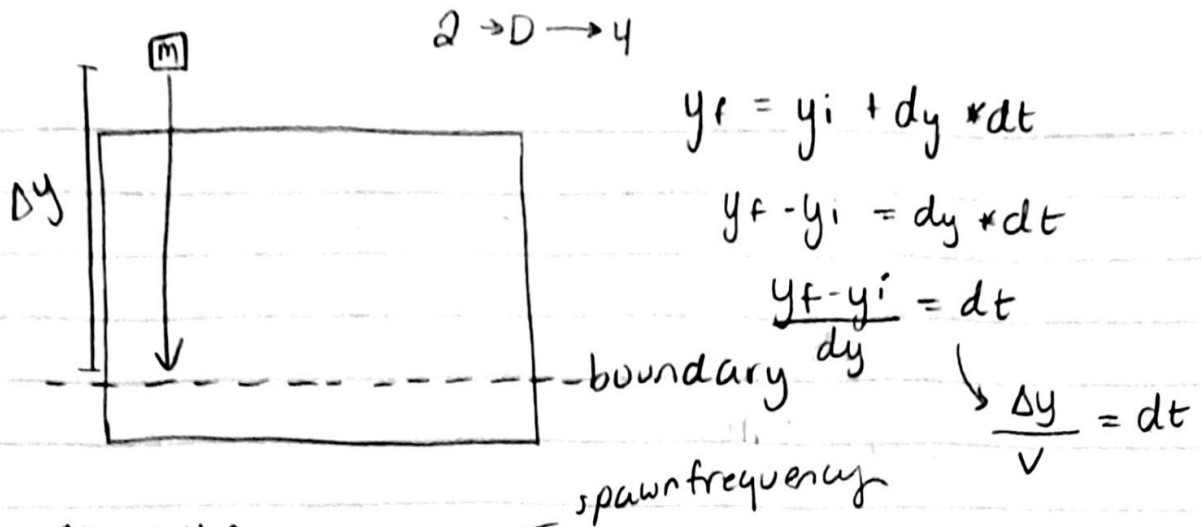 2 → D → 4
m
yf = yi + dy * dt
Δy
yf - yi = dy * dt
yf - yi / dy = dt
boundary
Δy / v = dt
spawnfrequency